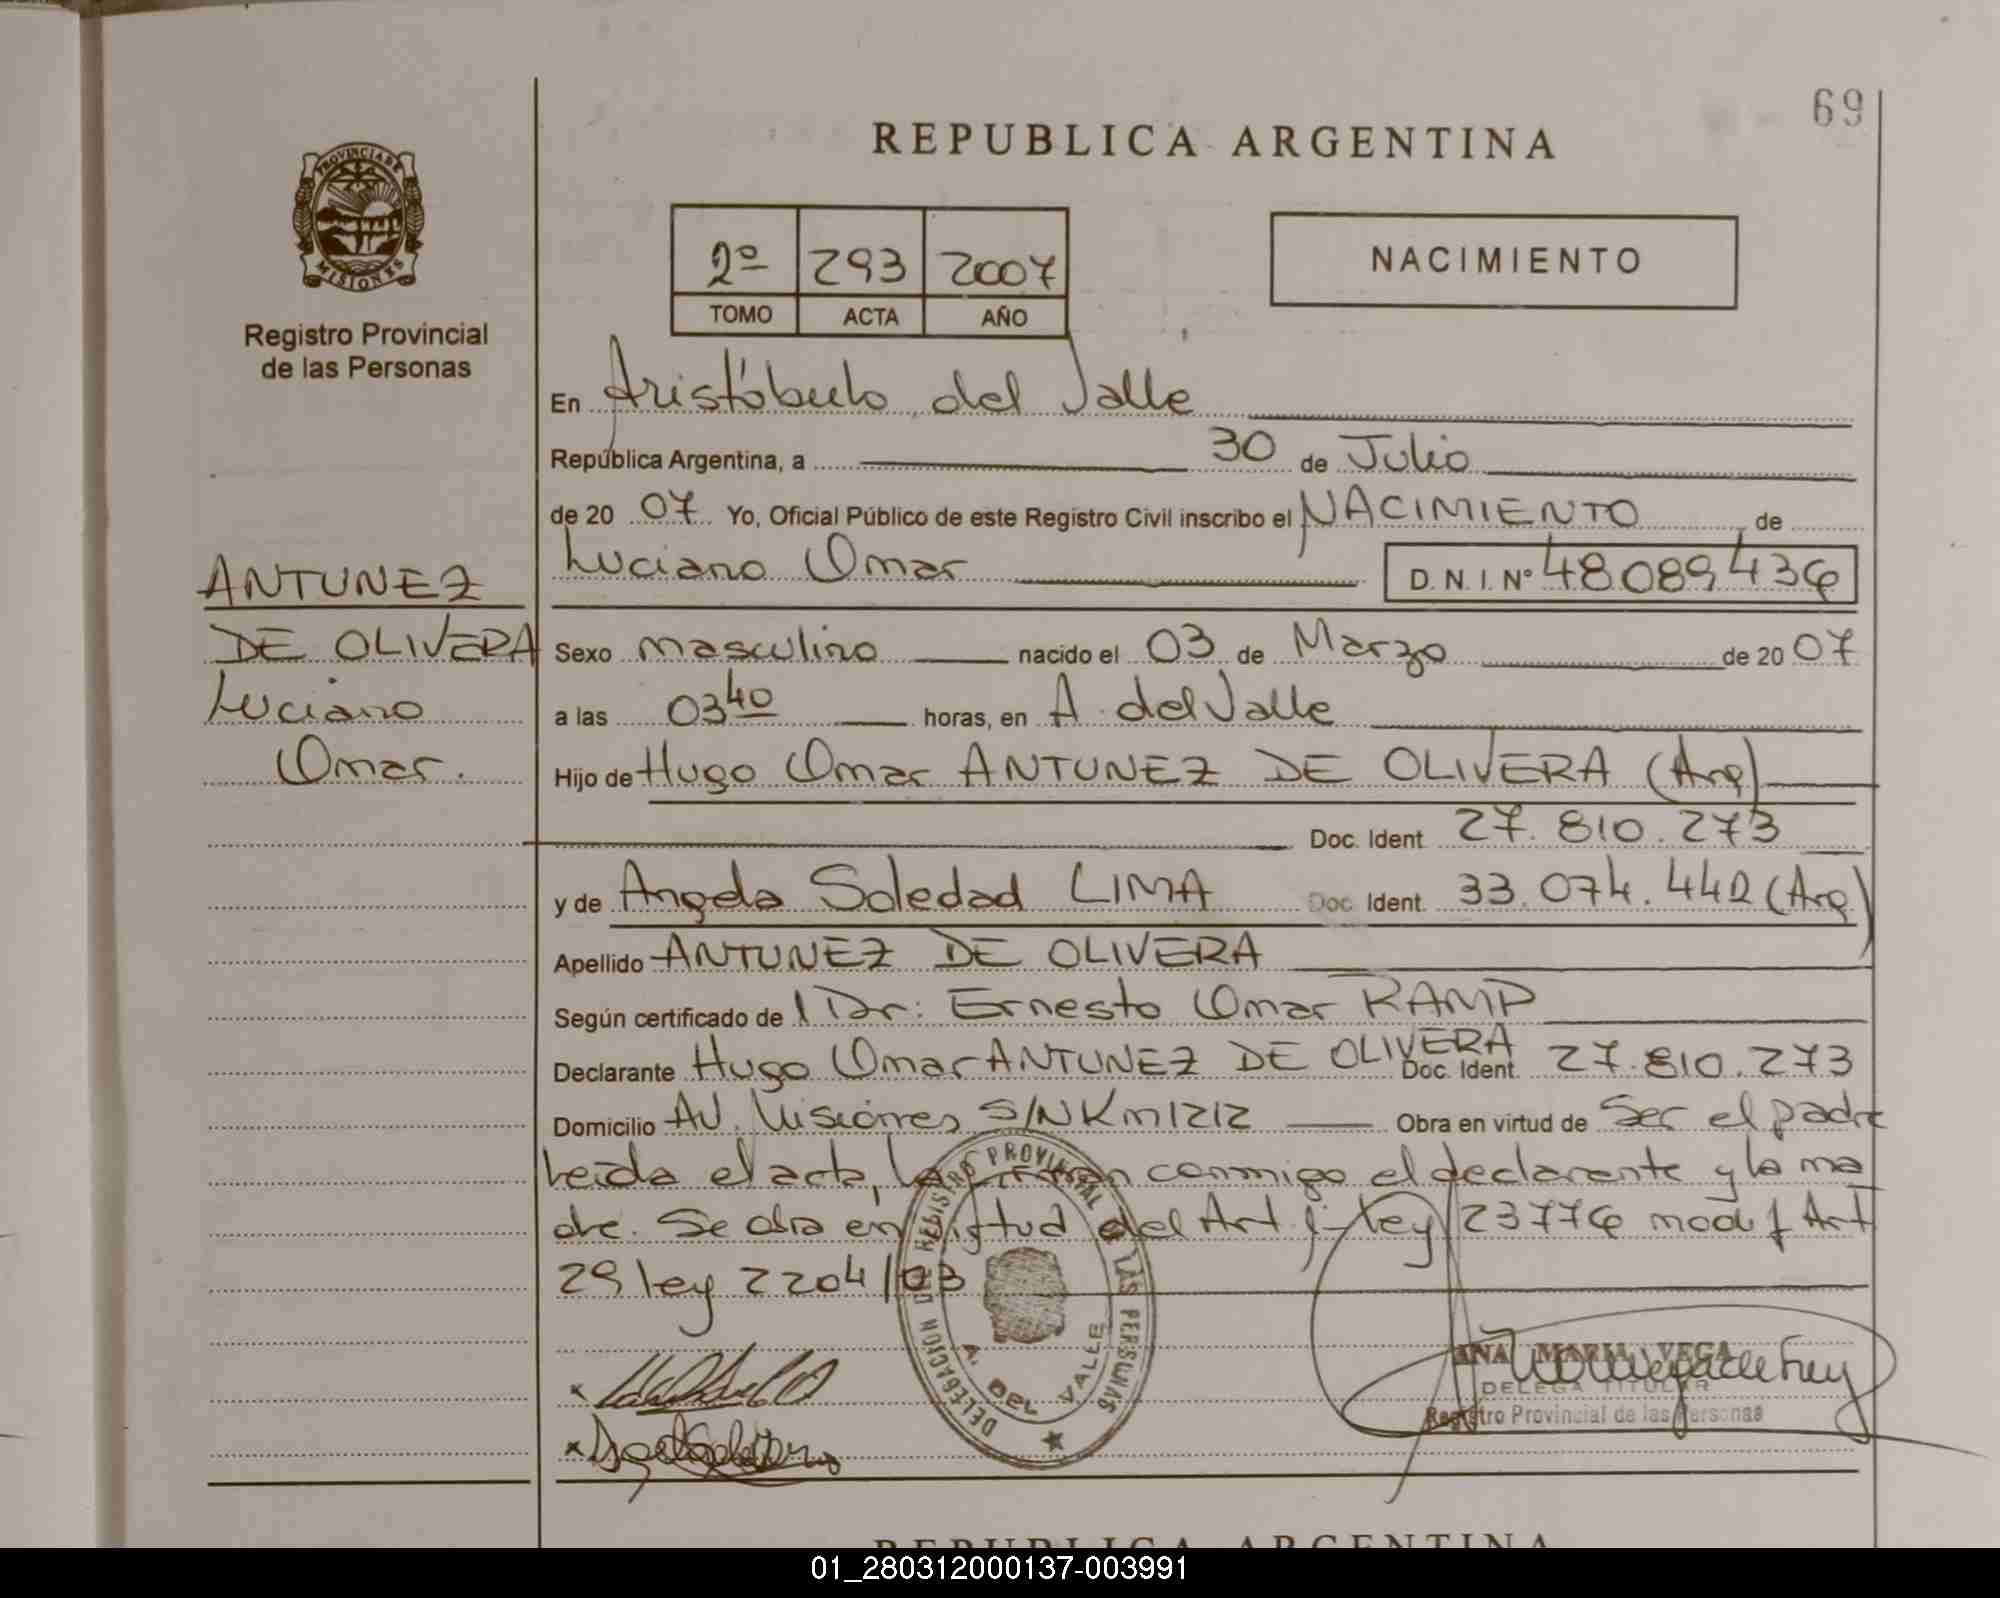 69
REPUBLICA ARGENTINA
PROVINCIA DE
MISIONES
Registro Provincial
de las Personas
2º 293 2007
TOMO ACTA AÑO
NACIMIENTO
En Aristóbulo del Valle
República Argentina, a 30 de Julio
de 20 07 Yo, Oficial Público de este Registro Civil inscribo el NACIMIENTO de
Luciano Omar D.N.I.Nº 48089436
ANTUNEZ
DE OLIVERA
Luciano
Omar.
Sexo masculino nacido el 03 de Marzo de 20 07
a las 03 40 horas, en A. del Valle
Hijo de Hugo Omar ANTUNEZ DE OLIVERA (Arg)
Doc. Ident. 27.810.273
y de Angela Soledad LIMA Doc. Ident. 33.074.442 (Arg)
Apellido ANTUNEZ DE OLIVERA
Según certificado de l Dr: Ernesto Omar RAMP
Declarante Hugo Omar ANTUNEZ DE OLIVERA Doc. Ident. 27.810.273
Domicilio AV. Misiones S/N Km 1212 Obra en virtud de Ser el padre
Leida el acta, la firman conmigo el declarante y la ma
dre. Se obra en virtud del Art. 1- ley 23776 modif Art
29 ley 2204/03
DELEGACION DEL REGISTRO PROVINCIAL DE LAS PERSONAS
A. DEL VALLE
ANA MARIA VEGA
DELEGA TITULAR
Registro Provincial de las Personas
REPUBLICA ARGENTINA
01_280312000137-003991